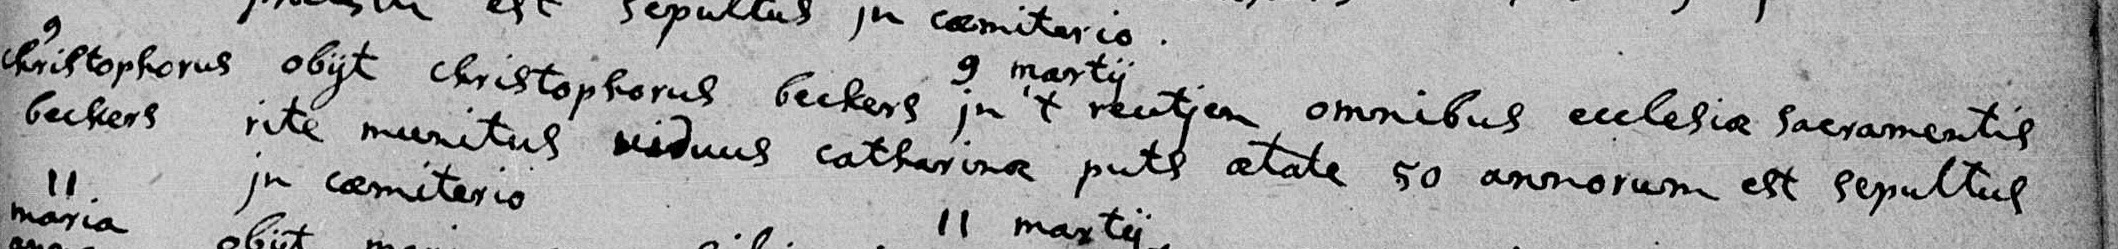 est sepultus jn cœmiterio.
9
9 martij
christophorus obijt christophorus beckers jn 't reutjen omnibus ecclesiæ sacramentis
beckers rite munitus viduus catharinæ puts ætate 50 annorum est sepultus
jn cœmiterio
11
11 martij
maria obijt